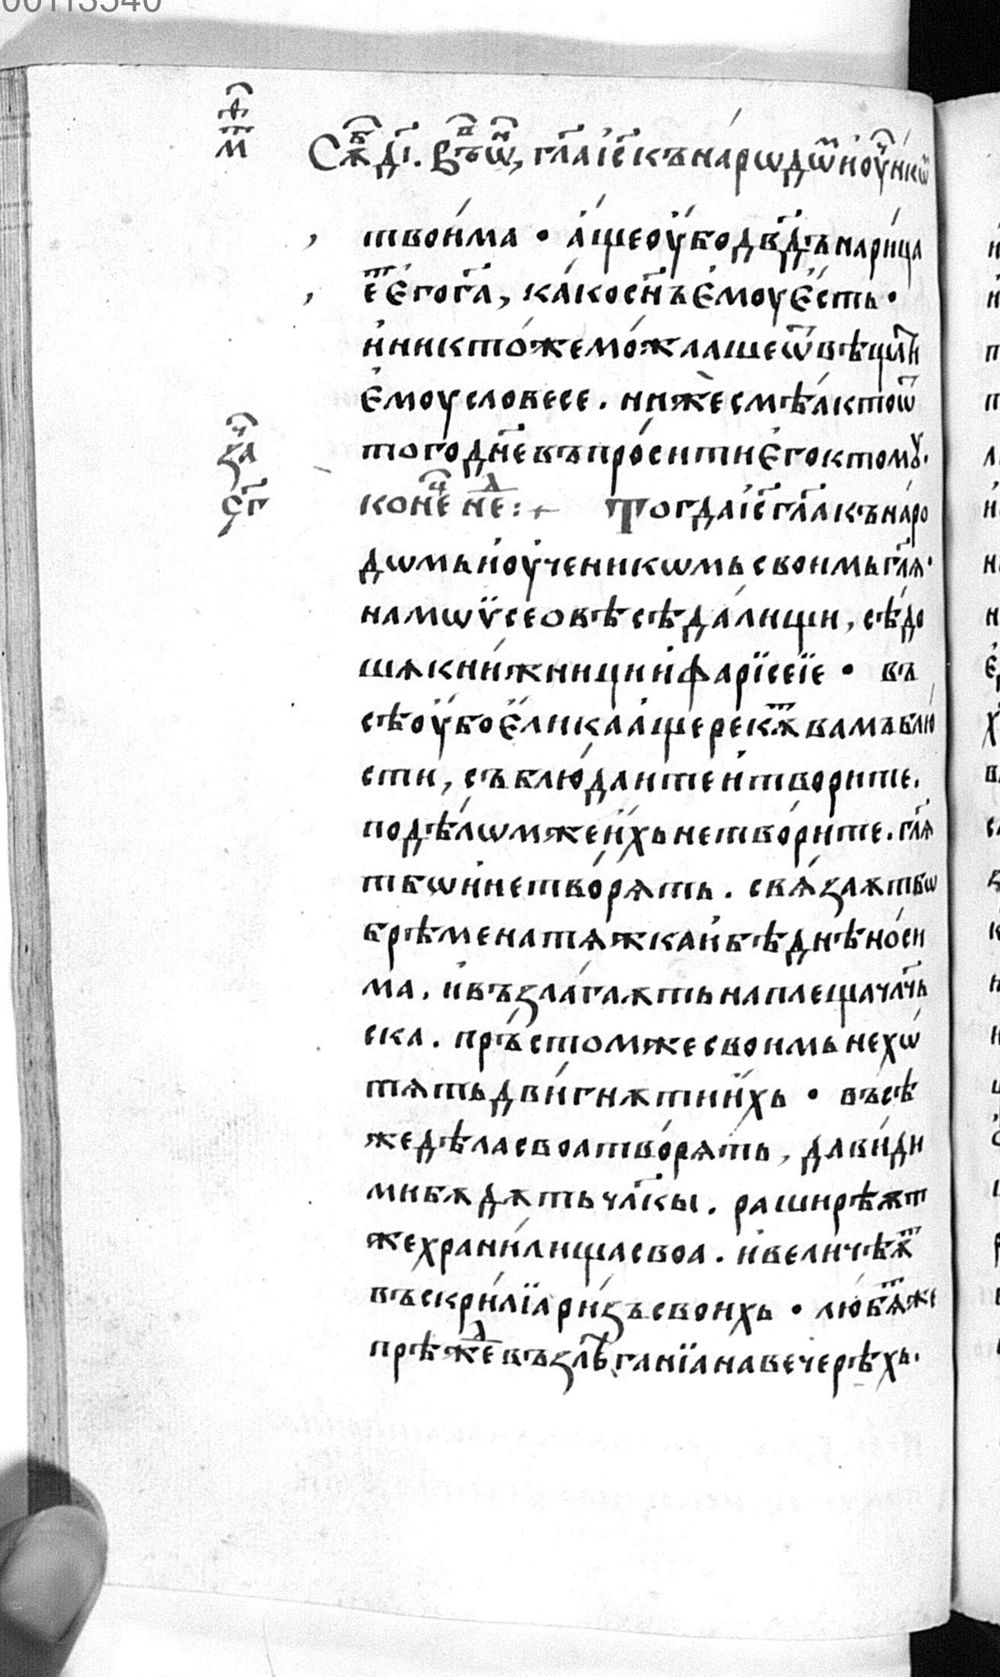 00113540
м҃
Сѫ҃ дı҃. Въѡ҃, гл҃а іс҃ къ нарѡдѡⷨ и оу҃чникѡⷨ
твоима • а́ще оу́бо дв҃дъ нарица
еⷮ е́го г҃а, ка́ко сн҃ъ е́моу е́сть •
и никто́же мо́жааше ѿвѣщаⷮи
е́моу словесе . ниже смѣа́ кто ѿ
того дн҃е въпро́сити е́го ктомꙋ .
за҃
сг҃
коне́ц нⷣе :+ Тогда іс҃ гл҃а къ наро
дѡмь и оу́ченикѡмь своимь гл҃ѧ •
на мѡѷсеовѣ сѣда́лищи, сѣдо
шѧ книжници и фарїсеїе • въ
сѣ оу́бо е́лика а́ще рекѫⷮ вамъ блю
сти, съблюдаите и творите .
по дѣлѡм же и́хь не твори́те . гл҃ѧ
т бѡ и не тво́рѧть . свѧ́заѫт бѡ
брѣмена тѧжка и бѣднѣ но́си
ма . и възлагаѫть на плеща чл҃чь
ска . пръ́стом же своимь не хѡ́
тѧть дви́гнѫти и́хь • въсѣ
же дѣла своа тво́рѧть, да ви́ди
ми бѫдѫть чл҃кы . раширѣѫт
же храни́лища своа . и величѣѫⷮ
въскри́лїа ри́зъ своихь • лю́бѧⷮ же
прѣжⷣе възлѣганїа на вечерѣхь .